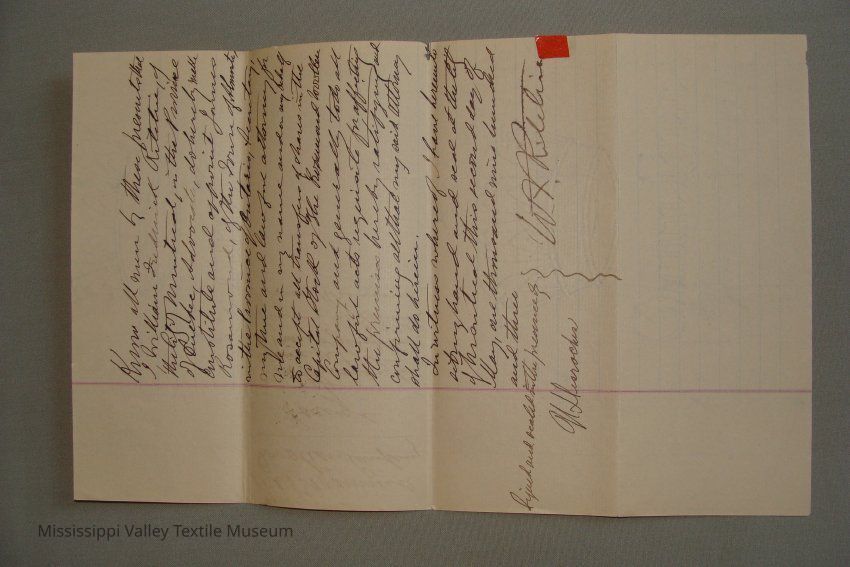 Know all men by these presents that
I William Frederick Ritchie of
the City of Montreal, in the Province
of Quebec, Advocate, do hereby make
constitute and appoint James
Rosamond, of the Town of Almonte,
in the Province of Ontario,
my true and lawful attorney for
me and in my name and on my behalf
to accept all transfers of shares in the
Capital Stock of the Rosamond Woollen
Company and generally to do all
lawful acts requisite for effecting
the premises hereby ratifying and
confirming all that my said attorney
shall do herein.
In witness whereof I have hereunto
set my hand and seal at the City
of Montreal this second day of
May, one thousand nine hundred
and three
Signed and sealed in the presence of
W. F. Ritchie
Mississippi Valley Textile Museum